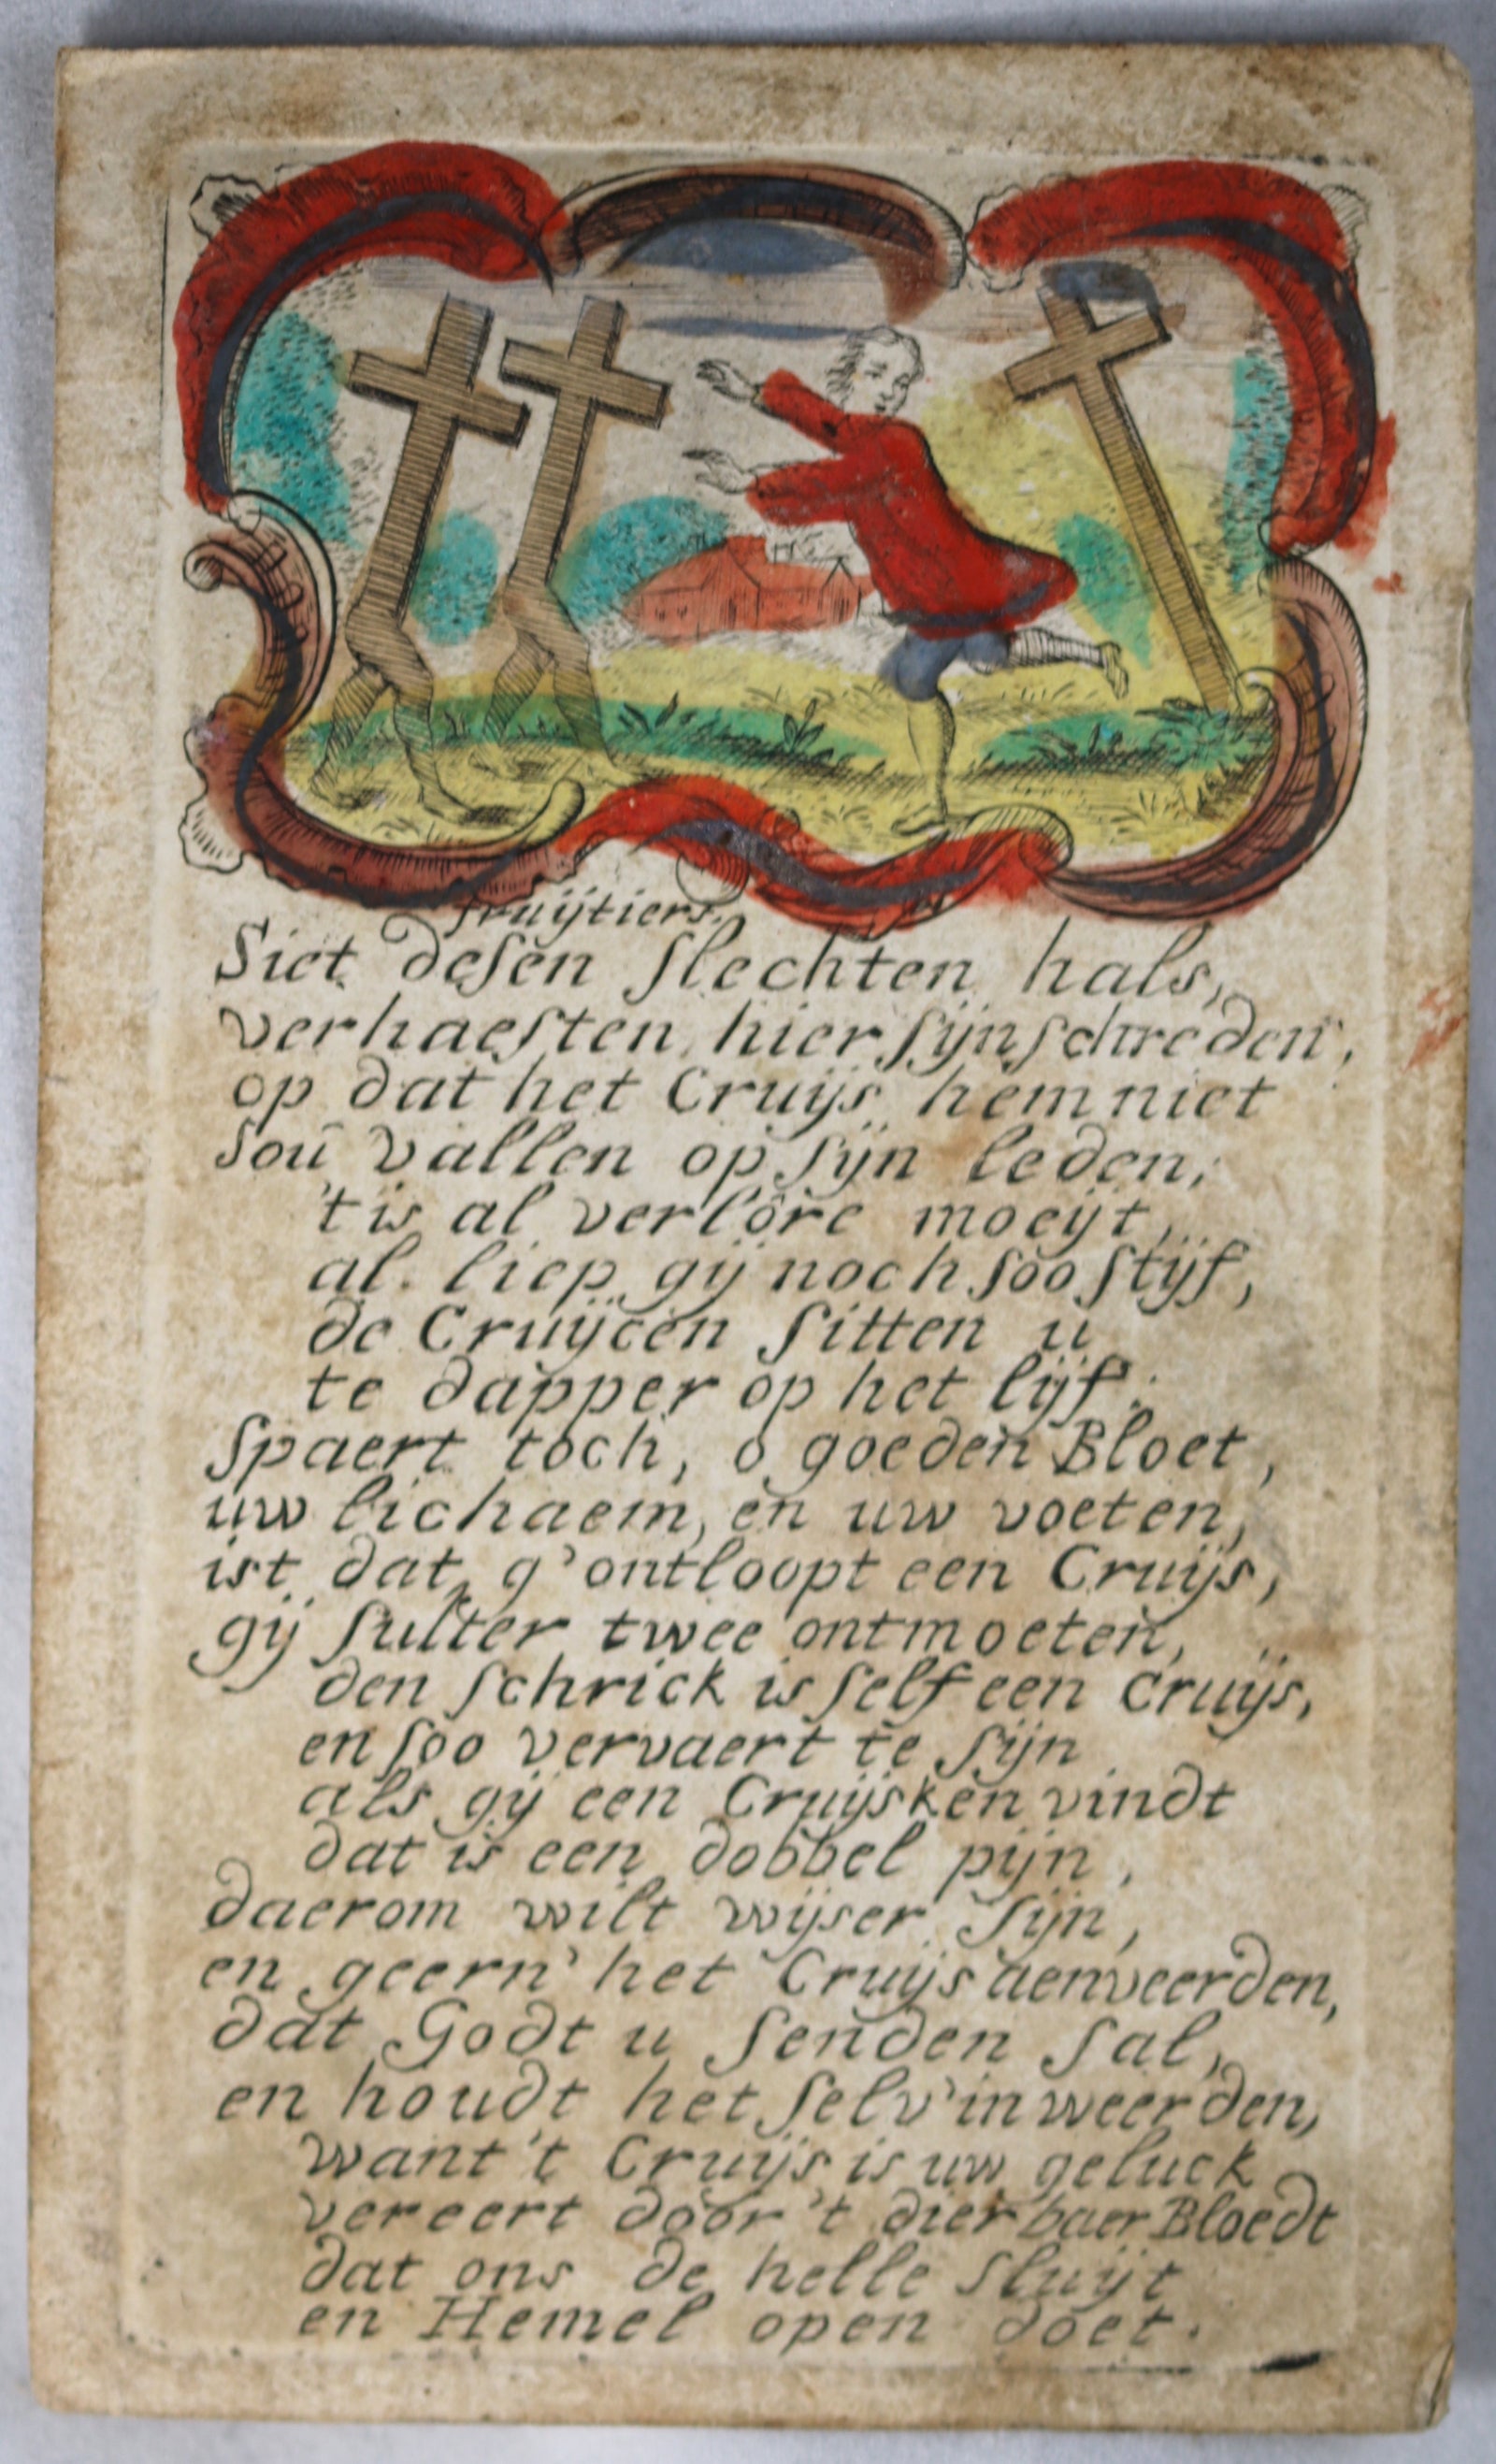 fruijtiers.
Siet desen slechten hals,
verhaesten hier sijn schreden,
op dat het Cruijs hem niet
sou vallen op sijn leden;
't is al verlore moeijt,
al liep gij noch soo stijf,
de Cruijcen sitten u
te dapper op het lijf:
Spaert toch, o goeden Bloet,
uw lichaem, en uw voeten,
ist dat g'ontloopt een Cruijs,
gij sulter twee ontmoeten,
den schrick is self een Cruijs,
en soo vervaert te sijn
als gij een Cruijsken vindt
dat is een dobbel pijn,
daerom wilt wijser sijn,
en geern' het Cruijs aenveerden,
dat Godt u senden sal,
en houdt het selv' in weerden,
want 't Cruijs is uw geluck
vereert door 't dierbaer Bloedt
dat ons de helle sluijt
en Hemel open doet.